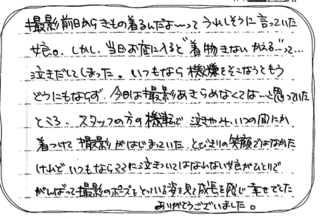 撮影前日からきもの着るんだな〜ってうれしそうに言っていた
娘。しかし、当日お店に入ると"着物きないかえる"って…
泣きだしてしまった。いつもなら機嫌をそこなうともう
どうにもならず、今回は撮影あきらめなくては…と思っていた
ところ、スタッフの方の機転で泣きやみ、いつの間にか
着つけて撮影がはじまっていた。とびきりの笑顔ではなかった
けれどいつもならママに泣きついてはなれない娘がひとりで
がんばって撮影のポーズをとっている姿を見て成長を感じ幸せでした
ありがとうございました。